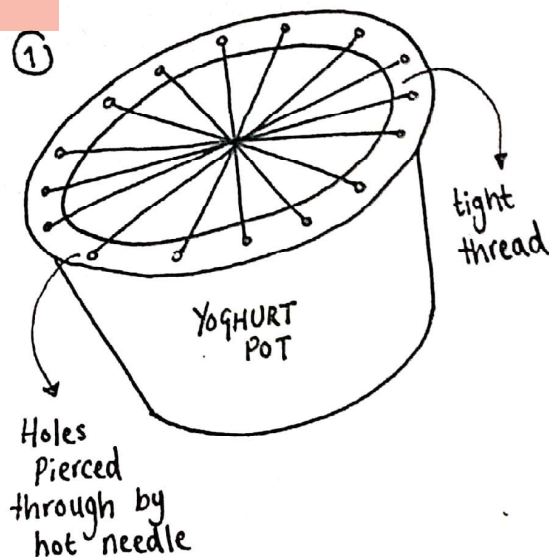 ①
tight
thread
YOGHURT
POT
Holes
Pierced
through by
hot needle